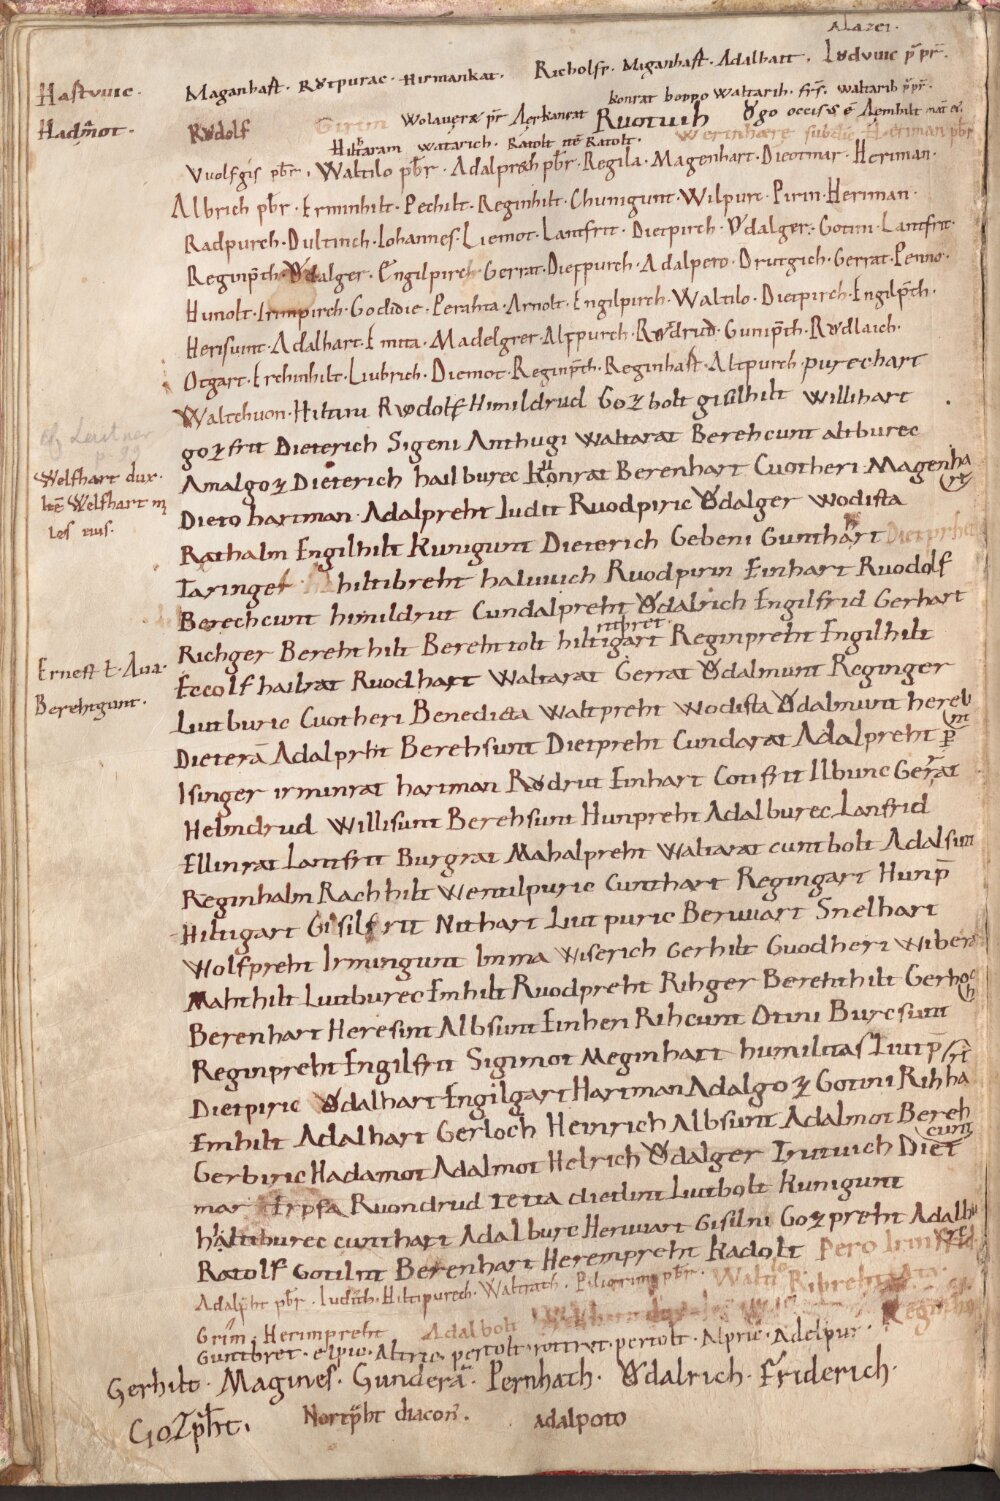 Alazei.
Maganhaſt. Rͦutpurac. Hirmankat. Richolfr. Maganhaſt. Adalhart. Lͦudvuic p̄ pr̄.
Haſtvuic.
Hadm̄ot.
konrat boppo waltarih. fr̄ſ. waltarih p̄ pr̄.
Rͦudolf Girim Wolauera pr̄ Aerkanrat Ruotuih ͦugo occiſus ē Aernhilt mat̄ ei.
Hiltaram watarich. Ratolt ite Ratolt. Werinhare subdiac Heriman pb̄r
Vuolfgiſ pb̄r. Waltilo pb̄r. Adalpreh pb̄r. Regila. Magenhart. Dieotmar. Heriman.
Albrich pb̄r. Erminhilt. Pechilt. Reginhilt. Chunigunt. Wilpurc. Pirin. Heriman.
Radpurch. Dultinch. Iohanneſ. Liemot. Lantfrit. Dietpirch. ͦudalger. Gotini. Lantfrit.
Reginp̄th. ͦudalger. Engilpirch. Gerrat. Dietpurch. Adalpero. Drutgich. Gerrat. Penno.
Hunolt. Irmpirch. Godidie. Perahta. Arnolt. Engilpirch. Waltilo. Dietpirch. Engilp̄th.
Heriſunt. Adalhart. Emita. Madelgrer. Altpurch. Rͦudrud. Gunip̄th. Rͦudlaich.
Otgart. Erchinhilt. Liubrich. Diemot. Reginp̄th. Reginhaſt. Altpurch. purechart
Waltchuon. Hiltini Rͦudolf Himildrud Gozbolt giſilhilt Willihart
gozfrit Dieterich Sigeni Anthugi Waltarat Berehcunt altburec
Amalgoz Dieterich hailburec Kͦonrat Berenhart Cuotheri. Magenha
rt
Welfhart dux.
Itē Welfhart mi
leſ eiuſ.
Dieto hartman. Adalpreht Iudit Ruodpiric ͦudalger Wodiſta
Rathalm Engilhilt Kunigunt Dieterich Gebeni Gunthart Dietpreht
Taringer hiltibreht haluuich Ruodpirin Einhart Ruodolf
Berechcunt himildrut Cundalpreht ͦudalrich Engilfrid Gerhart
Richger Berehthilt Berehtiolt hiltigart Reginpreht Engilhilt
Erneſt t. Aua.
Berehtgunt.
Eccolf hailrat Ruodhart Waltarat Gerrat ͦudalmunt Reginger
Liutburic Cuotheri Benedicta Waltpreht Wodiſta ͦudalmunt hereb
Dieterā Adalprht Berehſunt Dietpreht Cundarat Adalpreht p̄
Iſinger irminrat hartman Rͦudrut Einhart Cotifrit Ilbunc Gerat
Helmdrud Williſunt Berehſunt Hunpreht Adalburec Lanfrid
Ellinrat Lantfrit Burgrat Mahalpreht Waltarat cuntbolt Adalſint
Reginhalm Rachhilt Wentilpuric Cunthart Regingart Hunp̄
Hiltigart Giſilfrit Nithart Liutpuric Beruuart Snelhart
Wolfpreht Irmingunt Imma Wiſerich Gerhilt Guodheri Wibero
Mahthilt Liutburec Emhilt Ruodpreht Rihger Berehthilt Gerho
ch
Berenhart Hereſint Albſunt Einheri Rihcunt Otini Burcſunt
Reginpreht Engilfrit Sigimot Meginhart humilitaſ Liutp̄
Dietpiric ͦudalhart Engilgart Hartman Adalgoz Gotini Rihha
rt
Emhilt Adalhart Gerloch Heinrich Albſunt Adalmot Bereh
cunt
Gerbiric Hadamot Adalmot Helrich ͦudalger Irutuich Diet
mar Erpfa Ruondrud Tetta dietlint Liutbolt Kunigunt
hiltiburec cunthart Adalburc Heruuart Giſilni Gozpreht Adalha
rt
Ratolf Gotilnt Berenhart Herempreht Kadolt Pero Irmfrid
Adalp̄ht pb̄r. Iudith. Hiltipurech. Waltrath. Piligrim pb̄r. Waltilo Ribreht
Grīm. Herimpreht Adalbolt Reginho
Guntbret. elpic. Altric. pertolt. rottret. pertolt. Alpric. Adelpur.
Gerhilt. Magineſ. Gunderā. Pernhath. ͦudalrich. Friderich.
Gozp̄ht. Nortp̄ht diacon̄. adalpoto